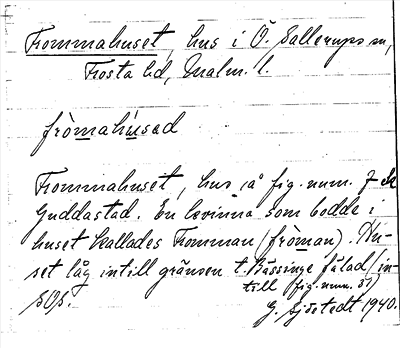 Frommahuset, hus i Ö. Sallerups sn,
Frosta hd, Malm. l.
fròmahúsəd
Frommahuset, hus på fig. num. 7
Guddastad. En kvinna som bodde i
huset kallades Fromman (fròman). Hu-
set låg intill gränsen t. Bässinge fälad (in-
till fig. num. 51)
sOs.
G. Sjöstedt 1940.